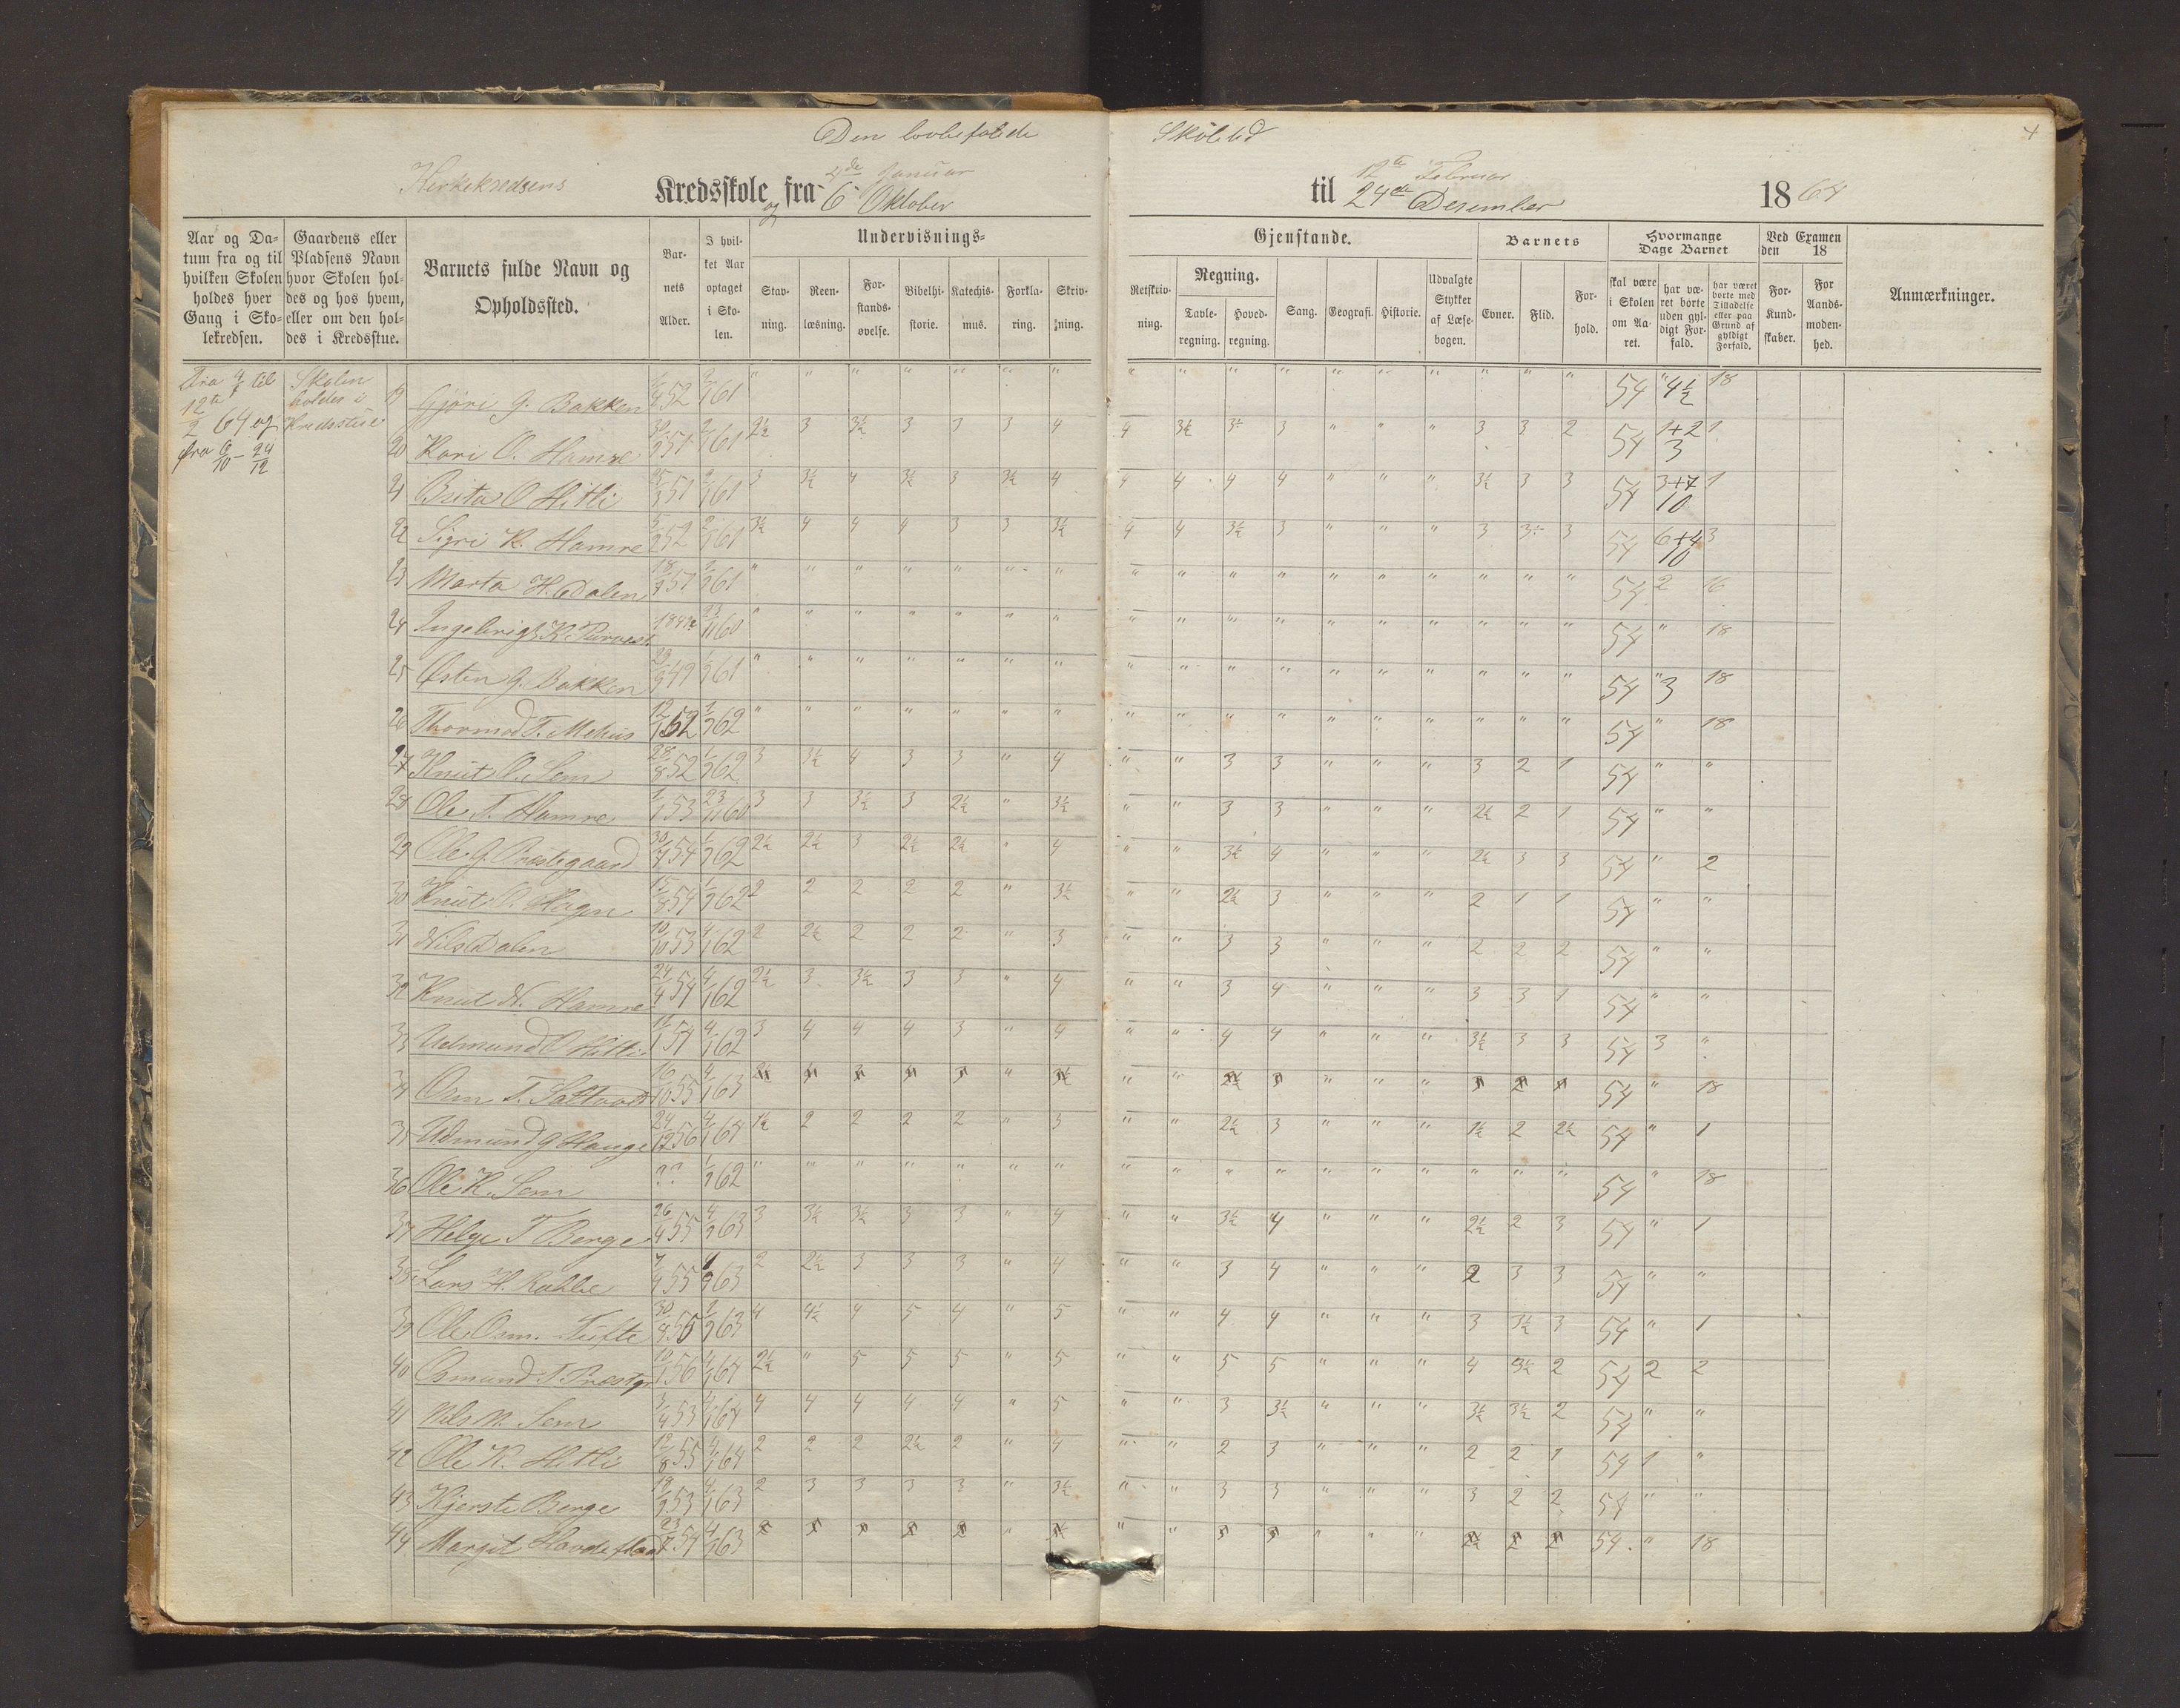 Den lovbefalede Skoletid
4
Kirkekredsens Kredsskole fra 4de Januar til 12te Februar
og 6 Oktober 24de Desember 1864
Aar og Datum fra og til hvilken Skolen holdes hver Gang i Skolekredsen.
Gaardens eller Pladsens Navn hvor Skolen holdes og hos hvem, eller om den holdes i Kredsstue.
Barnets fulde Navn og Opholdssted.
Barnets Alder.
I hvilket Aar optaget i Skolen.
Undervisnings-Gjenstande.
Stavning.
Reenlæsning.
Forstandsøvelse.
Bibelhistorie.
Katechismus.
Forklaring.
Skrivning.
Retskrivning.
Regning.
Tavleregning.
Hovedregning.
Sang.
Geografi.
Historie.
Udvalgte Stykker af Læsebogen.
Barnets
Evner.
Flid.
Forhold.
Hvormange Dage Barnet
skal være i Skolen om Aaret.
har været borte uden gyldigt Forfald.
har været borte med Tilladelse eller paa Grund af gyldigt Forfald.
Ved Examen den 18
For Kundskaber.
For Aandsmodenhed.
Anmærkninger.
Fra 4/1 til 12te/2 64 og fra 6/10 - 24/12
Skolen holdes i Kredsstue
19 Gjøri G. Bakken 52 61 " " " " " " " " " " " " " " " " " 54 " 4½ 18
20 Kari O. Hamre 51 61 2½ 3 3½ 3 3 3 4 4 3½ 3 3 " " " 3 3 2 54 1+2 3 1
21 Brita O Hitli 25/3 51 61 3 3½ 4 3½ 3 3½ 4 4 4 4 4 " " " 3½ 3 3 54 3+7 10 1
22 Sigri K. Hamre 52 61 3½ 4 4 4 3 3 3½ 4 4 3½ 3 " " " 3 3 3 54 6+4 10 3
23 Marta H. Dalen 51 61 " " " " " " " " " " " " " " " " " 54 2 16
24 Ingebrigt K. 23/11 60 " " " " " " " " " " " " " " " " " 54 " 18
25 Østen G. Bakken 49 61 " " " " " " " " " " " " " " 54 " 3 18
26 Thormod T. Mehus 12/1 52 62 " " " " " " " " " " " " " " " " " 54 " 18
27 Knut O. Sem 28/8 52 62 3 3½ 4 3 3 " 4 " " 3 3 " " " 3 2 1 54 " "
28 Ole T. Hamre 1/1 53 23/11 60 3 3 3½ 3 2½ " 3½ " " 3 3 " " " 2½ 2 1 54 " "
29 Ole G. Prestegaard 30/7 54 62 2½ 2½ 3 2½ 2½ " 4 " " 3½ 4 " " " 2½ 3 3 54 " 2
30 Knut O. Hagen 15/8 54 62 2 2 2 2 2 " 3½ " " 2½ 3 " " " 2 1 1 54 " "
31 Nils Dalen 10/10 53 4/1 62 2 2½ 2 2 2 " 3 " " 3 3 " " " 2 2 2 54 " "
32 Knut N. Hamre 24/4 54 4/1 62 2½ 3 3½ 3 3 " 4 " " 3 4 " " " 3 3 1 54 " "
33 Admund O Hitli 54 4/1 62 3 4 4 4 3 " 4 " " 4 4 " " " 3½ 3 3 54 3 "
34 Osm T. 16/10 55 4/1 63 " " " " " " 54 " 18
35 Admund G Hauge 24/12 56 4/1 64 1½ 2 2 2 2 " 3 " " 2½ 3 " " " 1½ 2 2½ 54 " 1
36 Ole K. Sem ?? 62 " " " " " " " " " " " " " " " " " 54 " 18
37 Helge T Berge 26/4 55 63 3 3½ 3½ 3 3 " 4 " " 3½ 4 " " " 2½ 2 3 54 " 1
38 Lars H. 55 63 2 2½ 3 3 3 " 4 " " 3 4 " " " 2 3 3 54 " "
39 Ole Osm. Tufte 55 63 4 4½ 4 5 4 " 5 " " 4 4 " " " 3 3½ 3 54 " 1
40 Osmund T. Præstg 56 64 2½ " 5 5 5 " 5 " " 5 5 " " " 4 3½ 2 54 2 2
41 Nils N. Sem 3/4 53 4/1 64 4 4 4 4 4 " 5 " " 3 3½ " " " 3½ 3½ 2 54 " "
42 Ole K. Hitli 12/8 55 4/1 64 2 2 2 2½ 2 " 4 " " 2 3 " " " 2 2 1 54 1 "
43 Kjersti Berge 53 4/1 63 2 3 3 3 3 " 3½ " " 3 3 " " " 3 2 2 54 " "
44 Margit 54 4/1 63 " " " " " " 54 " 18